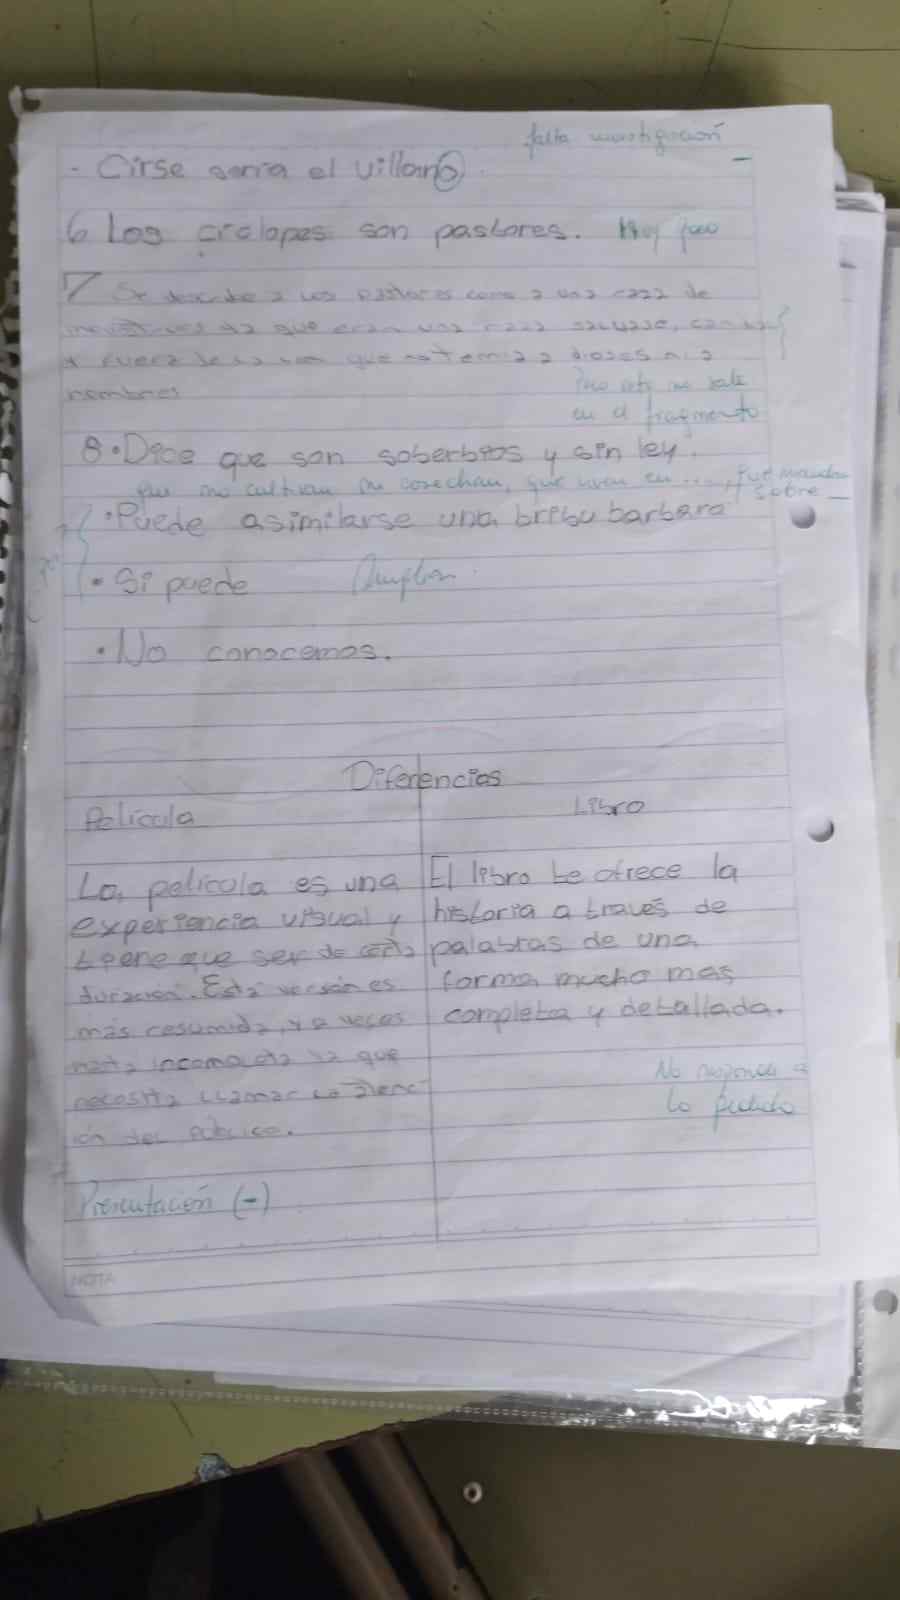 falta investigación
- Cirse seria el villano.
6 Los ciclopes son pastores. Muy poco
7 Se describe a los pastores como a una raza de
que eran una raza salvaje,
y fuera de la ley que no temia a dioses ni a
hombres
Pero esto no sale
en el fragmento
8. Dice que son soberbios y sin ley.
que no cultivan ni cosechan, que viven en ....,
sobre
• Puede asimilarse una bribu barbara
• Si puede Ampliar.
• No conocemos.
Diferencias
Película
La pelicula es una
experiencia visual y
tiene que ser de cierta
duracion. Esta version es
más resumida, y a veces
hasta incompleta ya que
necesita llamar la atenc-
ión del público.
Libro
El libro te ofrece la
historia a traves de
palabras de una
forma mucho mas
completa y detallada.
No responde a
lo pedido
Presentación (-)
NOTA